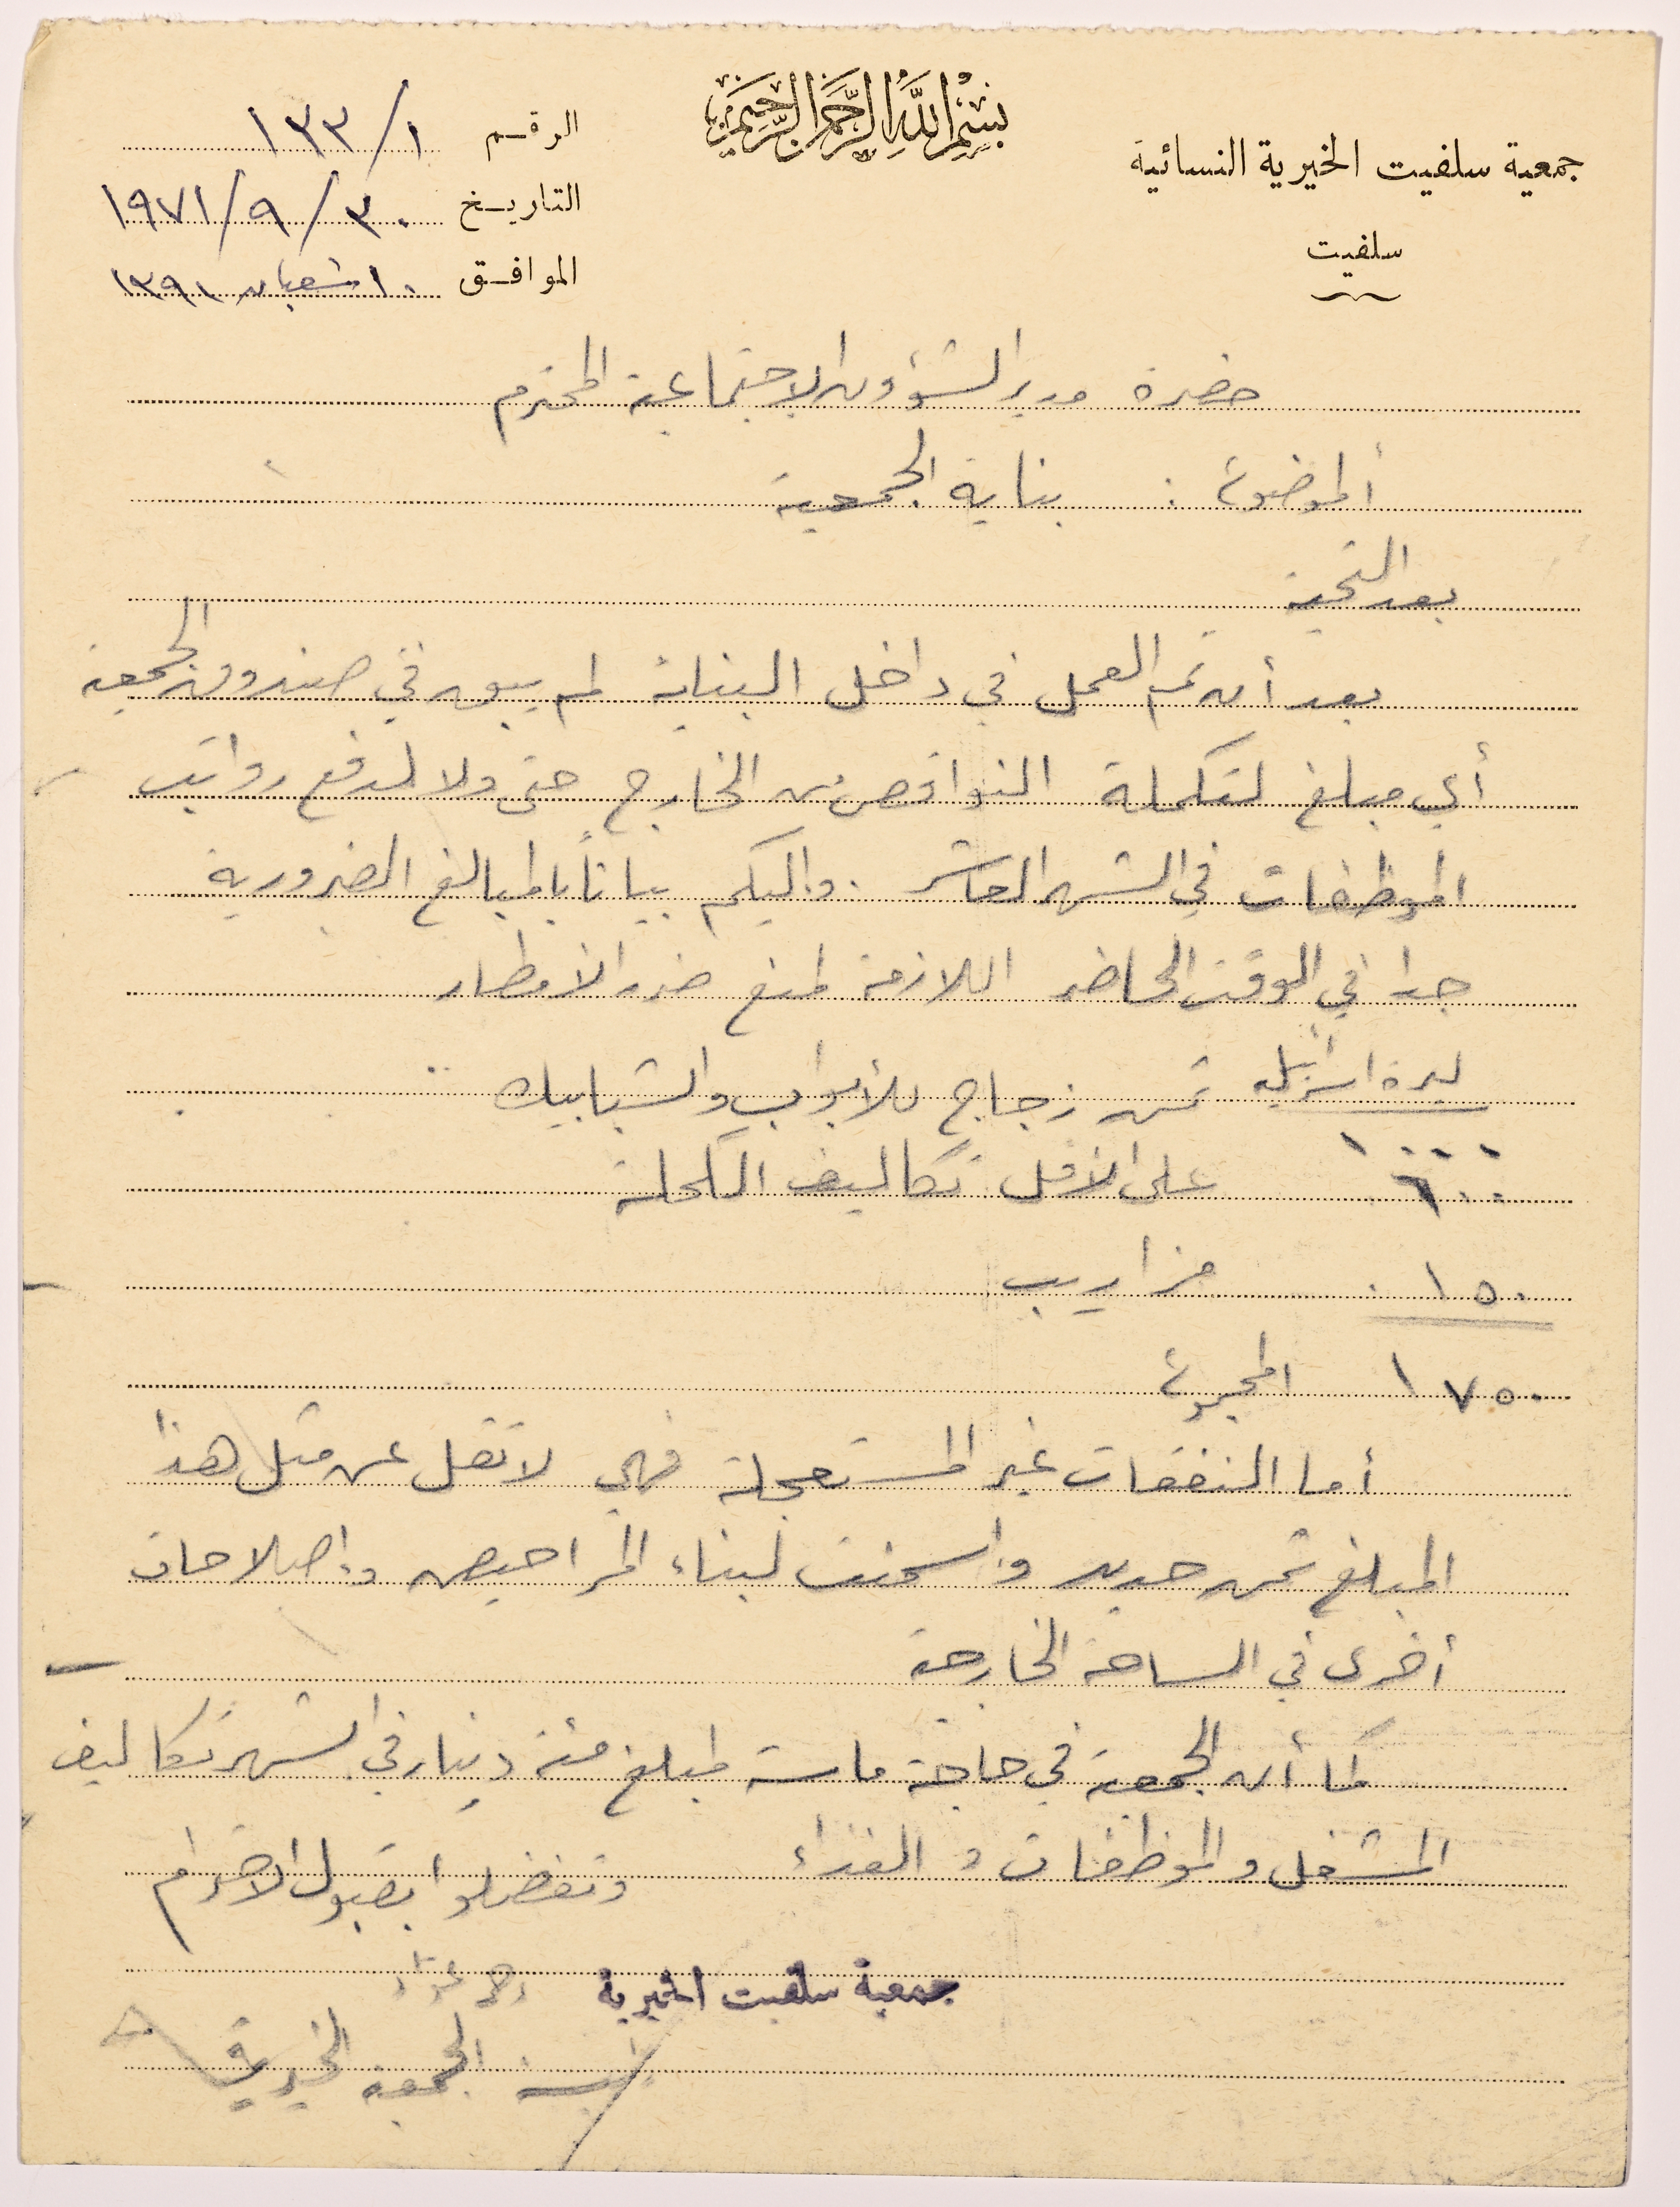 بسم الله الرحمن الرحيم
جمعية سلفيت الخيرية النسائية
سلفيت
الرقم ١/١٣٣
التاريخ ٣٠/٩/١٩٧١
الموافق ١٠ شعبان ١٣٩١
حضرة مدير الشؤون الاجتماعية المحترم
الموضوع : بناية الجمعية
بعد التحية
بعد أن تم العمل في داخل البناية لم يبق في صندوق الجمعية
أي مبلغ لتكملة النواقص من الخارج حتى ولا لدفع رواتب
الموظفات في الشهر العاشر . واليكم بياناً بالمبالغ الضرورية
جدا في الوقت الحاضر اللازمة لمنع ضرر الأمطار
ليرة اسرائيلية ثمن زجاج للأبواب والشبابيك
١٠٠٠
٦٠٠ على الأقل تكاليف الكحلة
١٥٠ مزاريب
١٧٥٠ المجموع
أما النفقات غير المستعجلة فهي لا تقل عن مثل هذا
المبلغ ثمن حديد واسمنت لبناء المراحيض وإصلاحات
أخرى في الساحة الخارجية
كما أن الجمعية في حاجة ماسة لمبلغ مئة دينار في الشهر تكاليف
المشغل والموظفات والغذاء وتفضلوا بقبول الاحترام
جمعية سلفيت الخيرية
الجمعية الخيرية